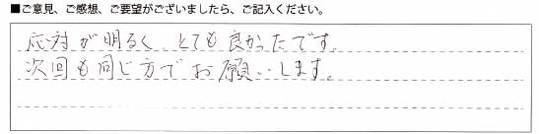 ■ご意見、ご感想、ご要望がございましたら、ご記入ください。
応対が明るく、とても良かったです。
次回も同じ方でお願いします。